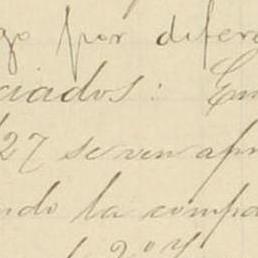 go por difere
ciados: En
27 se ven apr
ndo la compa